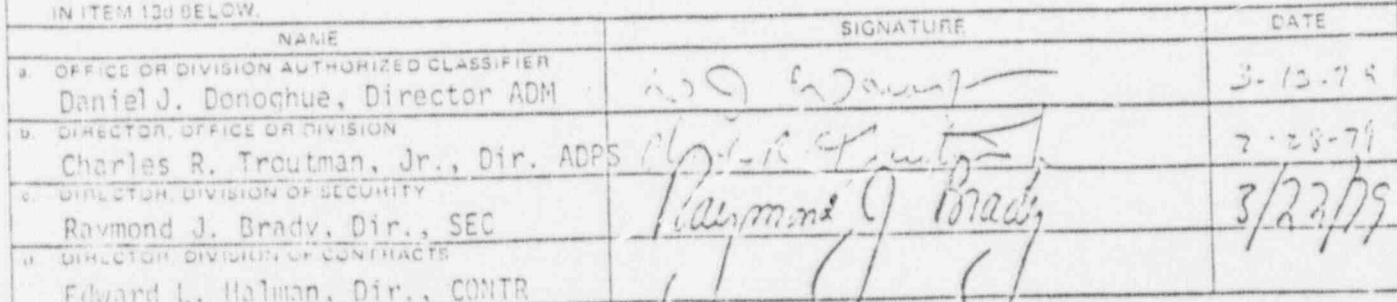 IN ITEM 13d BELOW.
NAME SIGNATURE DATE
a. OFFICE OR DIVISION AUTHORIZED CLASSIFIER
Daniel J. Donoghue, Director ADM 3-13-79
b. DIRECTOR, OFFICE OR DIVISION
Charles R. Troutman, Jr., Dir. ADPS 2-28-79
c. DIRECTOR, DIVISION OF SECURITY
Raymond J. Brady, Dir., SEC Raymond J Brady 3/22/79
d. DIRECTOR, DIVISION OF CONTRACTS
Edward L. Halman, Dir., CONTR